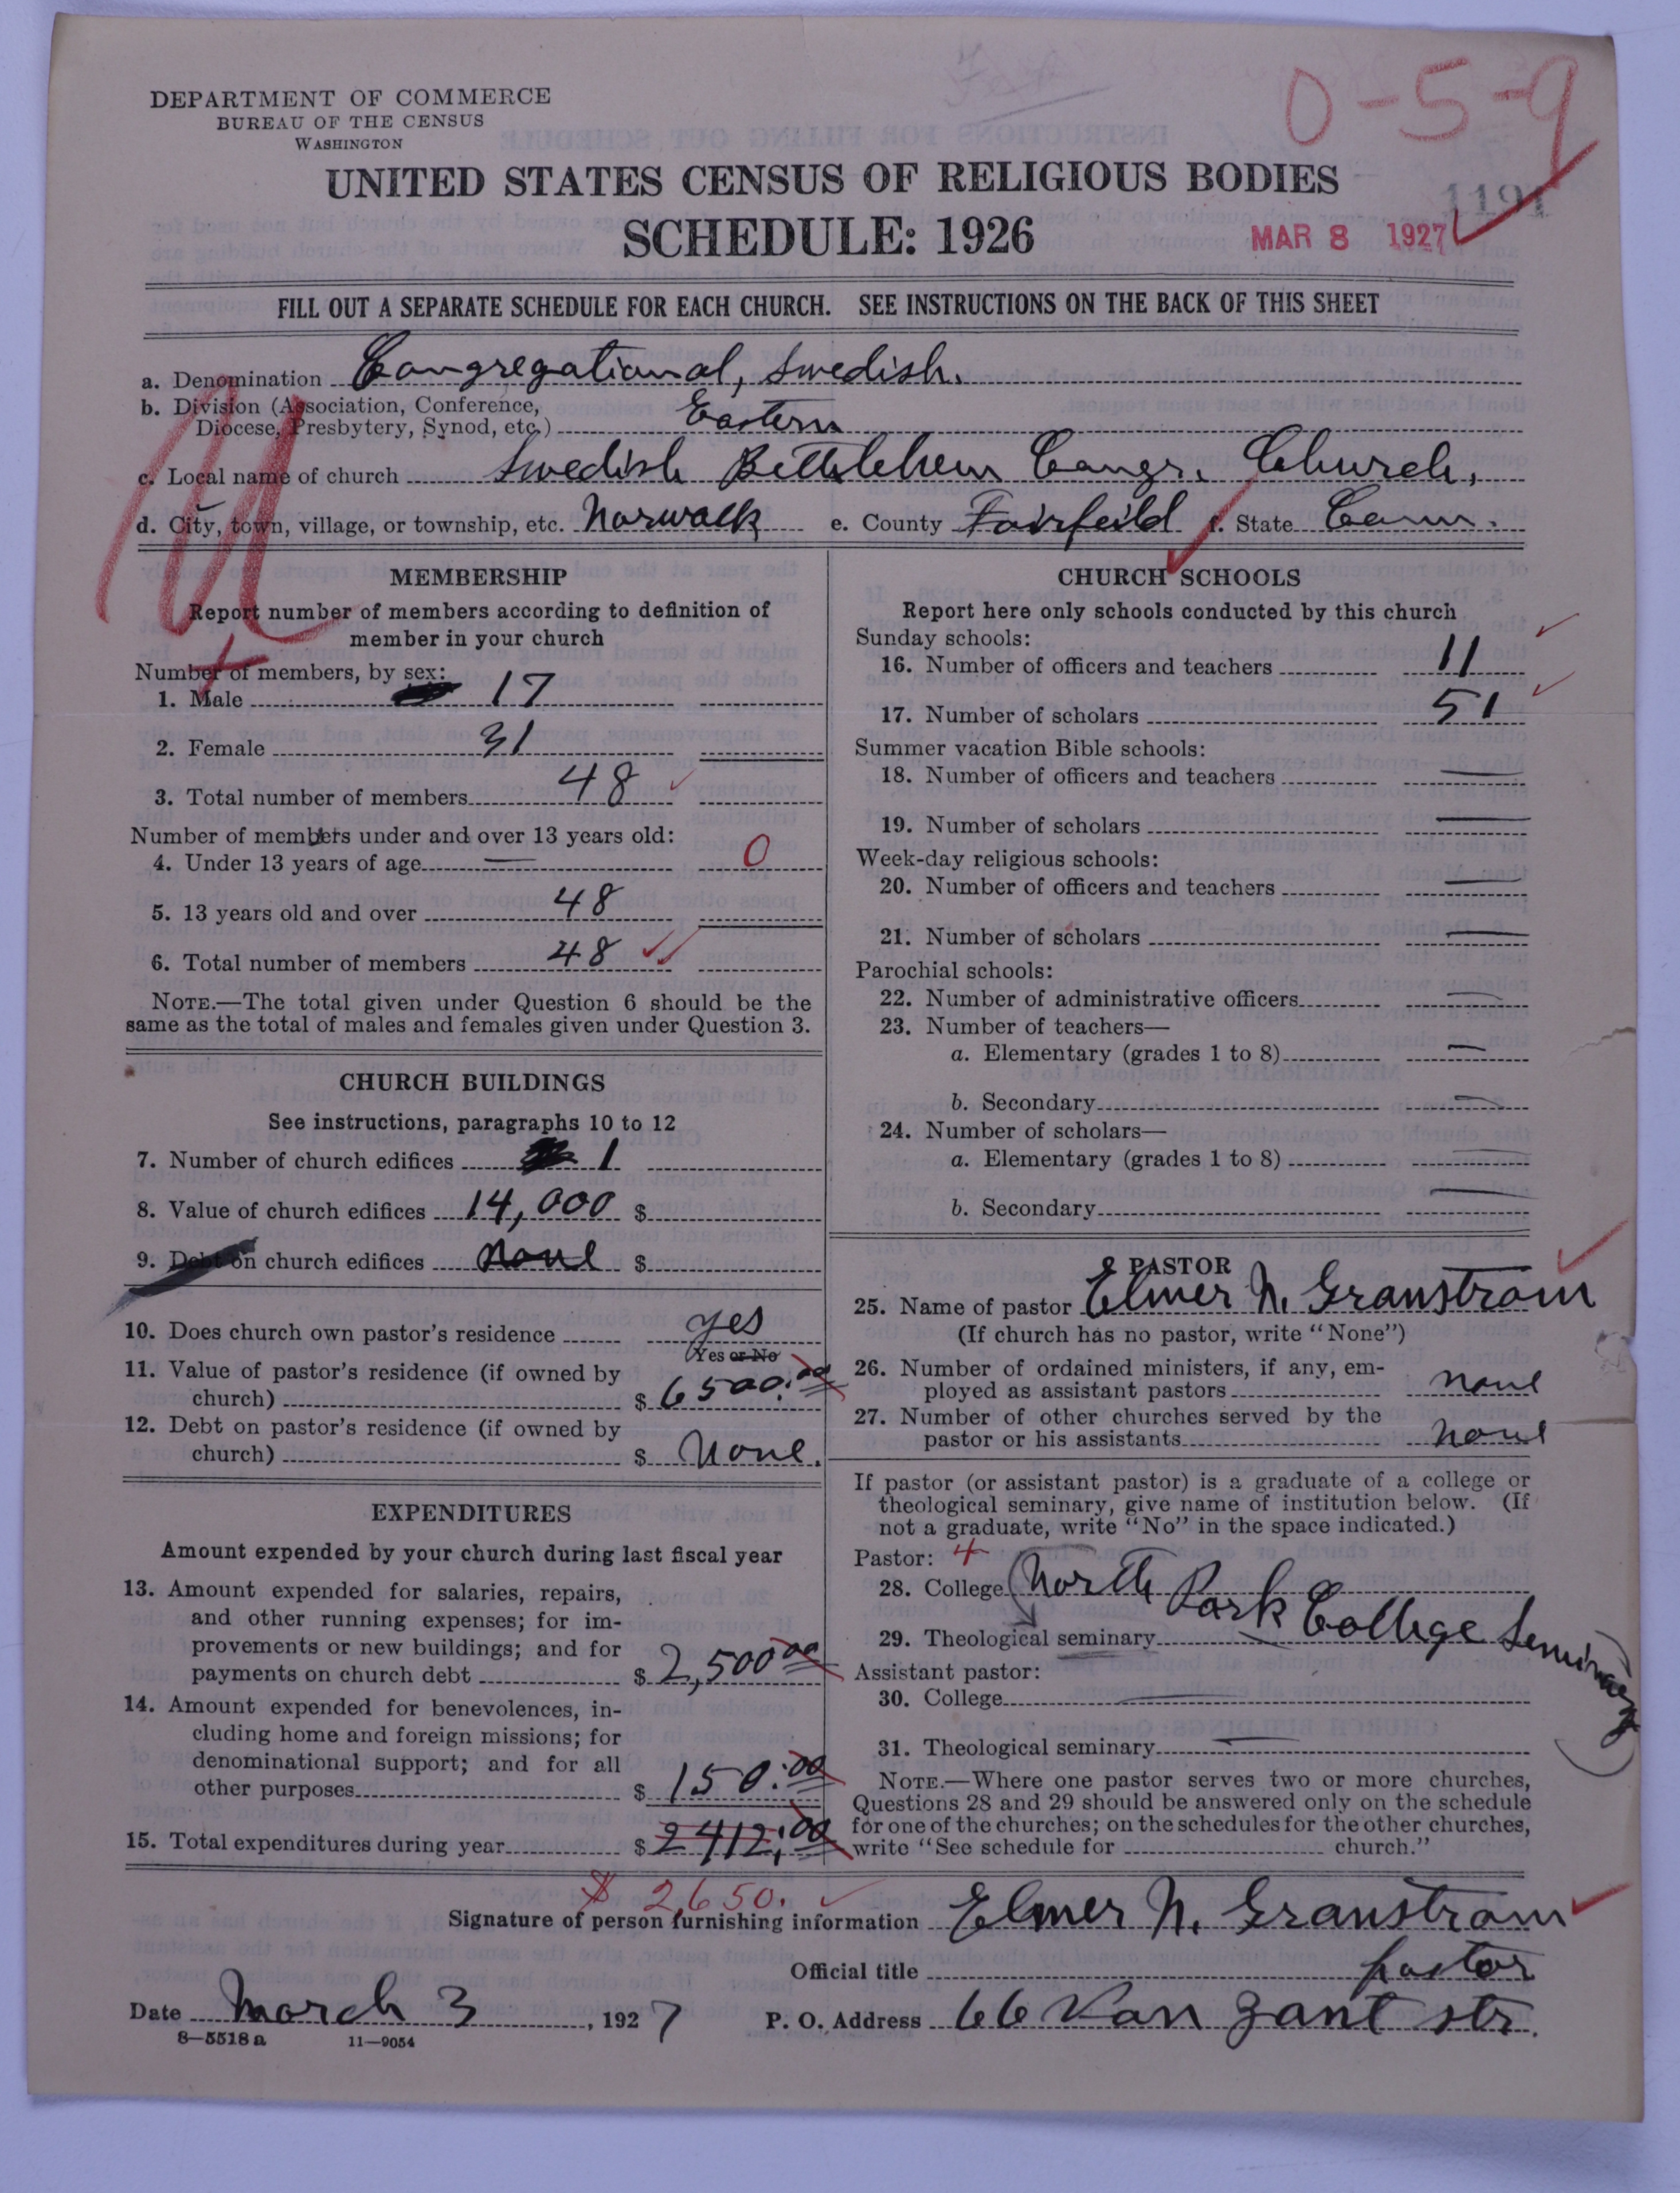 0-5-9
DEPARTMENT OF COMMERCE
BUREAU OF THE CENSUS
WASHINGTON
UNITED STATES CENSUS OF RELIGIOUS BODIES
1191
SCHEDULE: 1926
MAR 8 1927
FILL OUT A SEPARATE SCHEDULE FOR EACH CHURCH. SEE INSTRUCTIONS ON THE BACK OF THIS SHEET
a. Denomination Congregational, Swedish.
b. Division (Association, Conference,
Diocese, Presbytery, Synod, etc.) Eastern
c. Local name of church Swedish Bethlehem Congr. Church,
d. City, town, village, or township, etc. Norwalk e. County Fairfeild f. State Conn.
MEMBERSHIP
Report number of members according to definition of
member in your church
Number of members, by sex:
1. Male 17
2. Female 31
3. Total number of members 48
Number of members under and over 13 years old:
4. Under 13 years of age — 0
5. 13 years old and over 48
6. Total number of members 48
NOTE.—The total given under Question 6 should be the
same as the total of males and females given under Question 3.
CHURCH BUILDINGS
See instructions, paragraphs 10 to 12
7. Number of church edifices 1
8. Value of church edifices 14,000 $
9. Debt on church edifices None $
10. Does church own pastor's residence yes
Yes or No
11. Value of pastor's residence (if owned by
church) $ 6500.00
12. Debt on pastor's residence (if owned by
church) $ None.
EXPENDITURES
Amount expended by your church during last fiscal year
13. Amount expended for salaries, repairs,
and other running expenses; for im-
provements or new buildings; and for
payments on church debt $ 2,500 00
14. Amount expended for benevolences, in-
cluding home and foreign missions; for
denominational support; and for all
other purposes $ 150.00
15. Total expenditures during year $ 2412.00
$ 2,650.
CHURCH SCHOOLS
Report here only schools conducted by this church
Sunday schools:
16. Number of officers and teachers 11
17. Number of scholars 51
Summer vacation Bible schools:
18. Number of officers and teachers —
19. Number of scholars —
Week-day religious schools:
20. Number of officers and teachers —
21. Number of scholars —
Parochial schools:
22. Number of administrative officers —
23. Number of teachers—
a. Elementary (grades 1 to 8) —
b. Secondary —
24. Number of scholars—
a. Elementary (grades 1 to 8) —
b. Secondary —
PASTOR
25. Name of pastor Elmer N. Granstrom
(If church has no pastor, write "None")
26. Number of ordained ministers, if any, em-
ployed as assistant pastors None
27. Number of other churches served by the
pastor or his assistants None
If pastor (or assistant pastor) is a graduate of a college or
theological seminary, give name of institution below. (If
not a graduate, write "No" in the space indicated.)
Pastor: 4
28. College North Park College Seminary
29. Theological seminary
Assistant pastor:
30. College —
31. Theological seminary —
NOTE.—Where one pastor serves two or more churches,
Questions 28 and 29 should be answered only on the schedule
for one of the churches; on the schedules for the other churches,
write "See schedule for church."
Signature of person furnishing information Elmer N. Granstrom
Official title pastor
Date March 3, 1927 P. O. Address 66 Van Zant str.
8—5518 a 11—9054